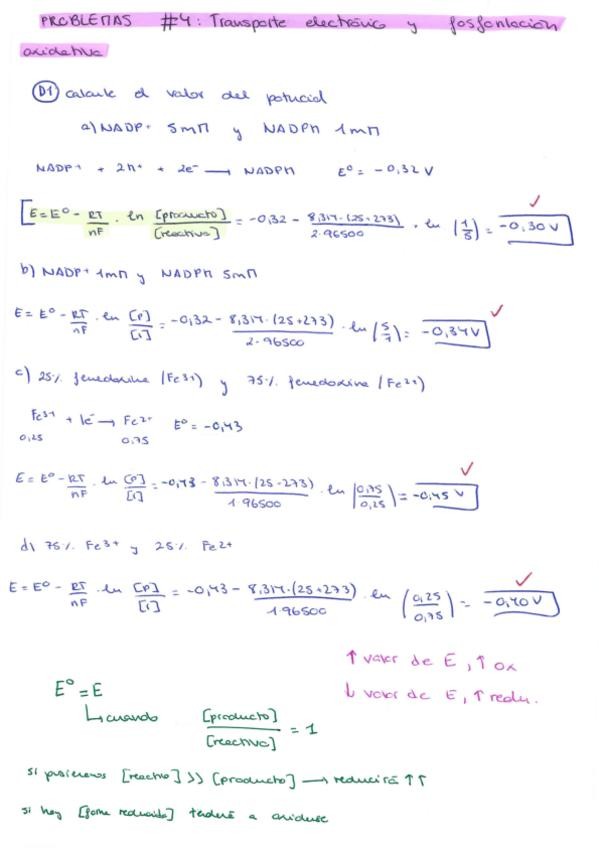 PROBLEMAS #4: Transporte electrónico y fosforilación
oxidativa
D1 Calcule el valor del potencial
a) NADP+ 5mM y NADPH 1mM
NADP+ + 2H+ + 2e- → NADPH E° = -0,32 V
E = E° - RT/nF · ln [producto]/[reactivo] = -0,32 - 8,314·(25+273)/2·96500 · ln (1/5) = -0,30 V ✓
b) NADP+ 1mM y NADPH 5mM
E = E° - RT/nF · ln [P]/[r] = -0,32 - 8,314·(25+273)/2·96500 · ln (5/1) = -0,34 V ✓
c) 25% ferredoxina (Fe3+) y 75% ferredoxina (Fe2+)
Fe3+ + 1e- → Fe2+ E° = -0,43
0,25 0,75
E = E° - RT/nF · ln [P]/[r] = -0,43 - 8,314·(25-273)/1·96500 · ln (0,75/0,25) = -0,45 V ✓
d) 75% Fe3+ y 25% Fe2+
E = E° - RT/nF · ln [P]/[r] = -0,43 - 8,314·(25+273)/1·96500 · ln (0,25/0,75) = -0,40 V ✓
↑ valor de E, ↑ ox
↓ valor de E, ↑ redu.
E° = E
↳ cuando [producto]/[reactivo] = 1
si pusieramos [reactivo] >> [producto] → reducirá ↑↑
si hay [forma reducida] tenderá a oxidarse